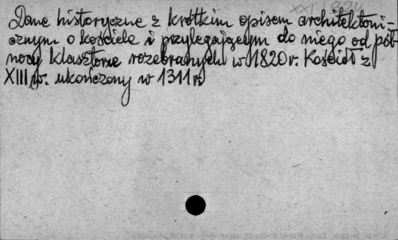 Dane historyczne z krótkim opisem architektoni-
cznym o kościele i przylegającym do niego od pół-
nocy klasztorze rozebranym w 1820 r. Kościół z
XIII w. ukończony w 1311 r.